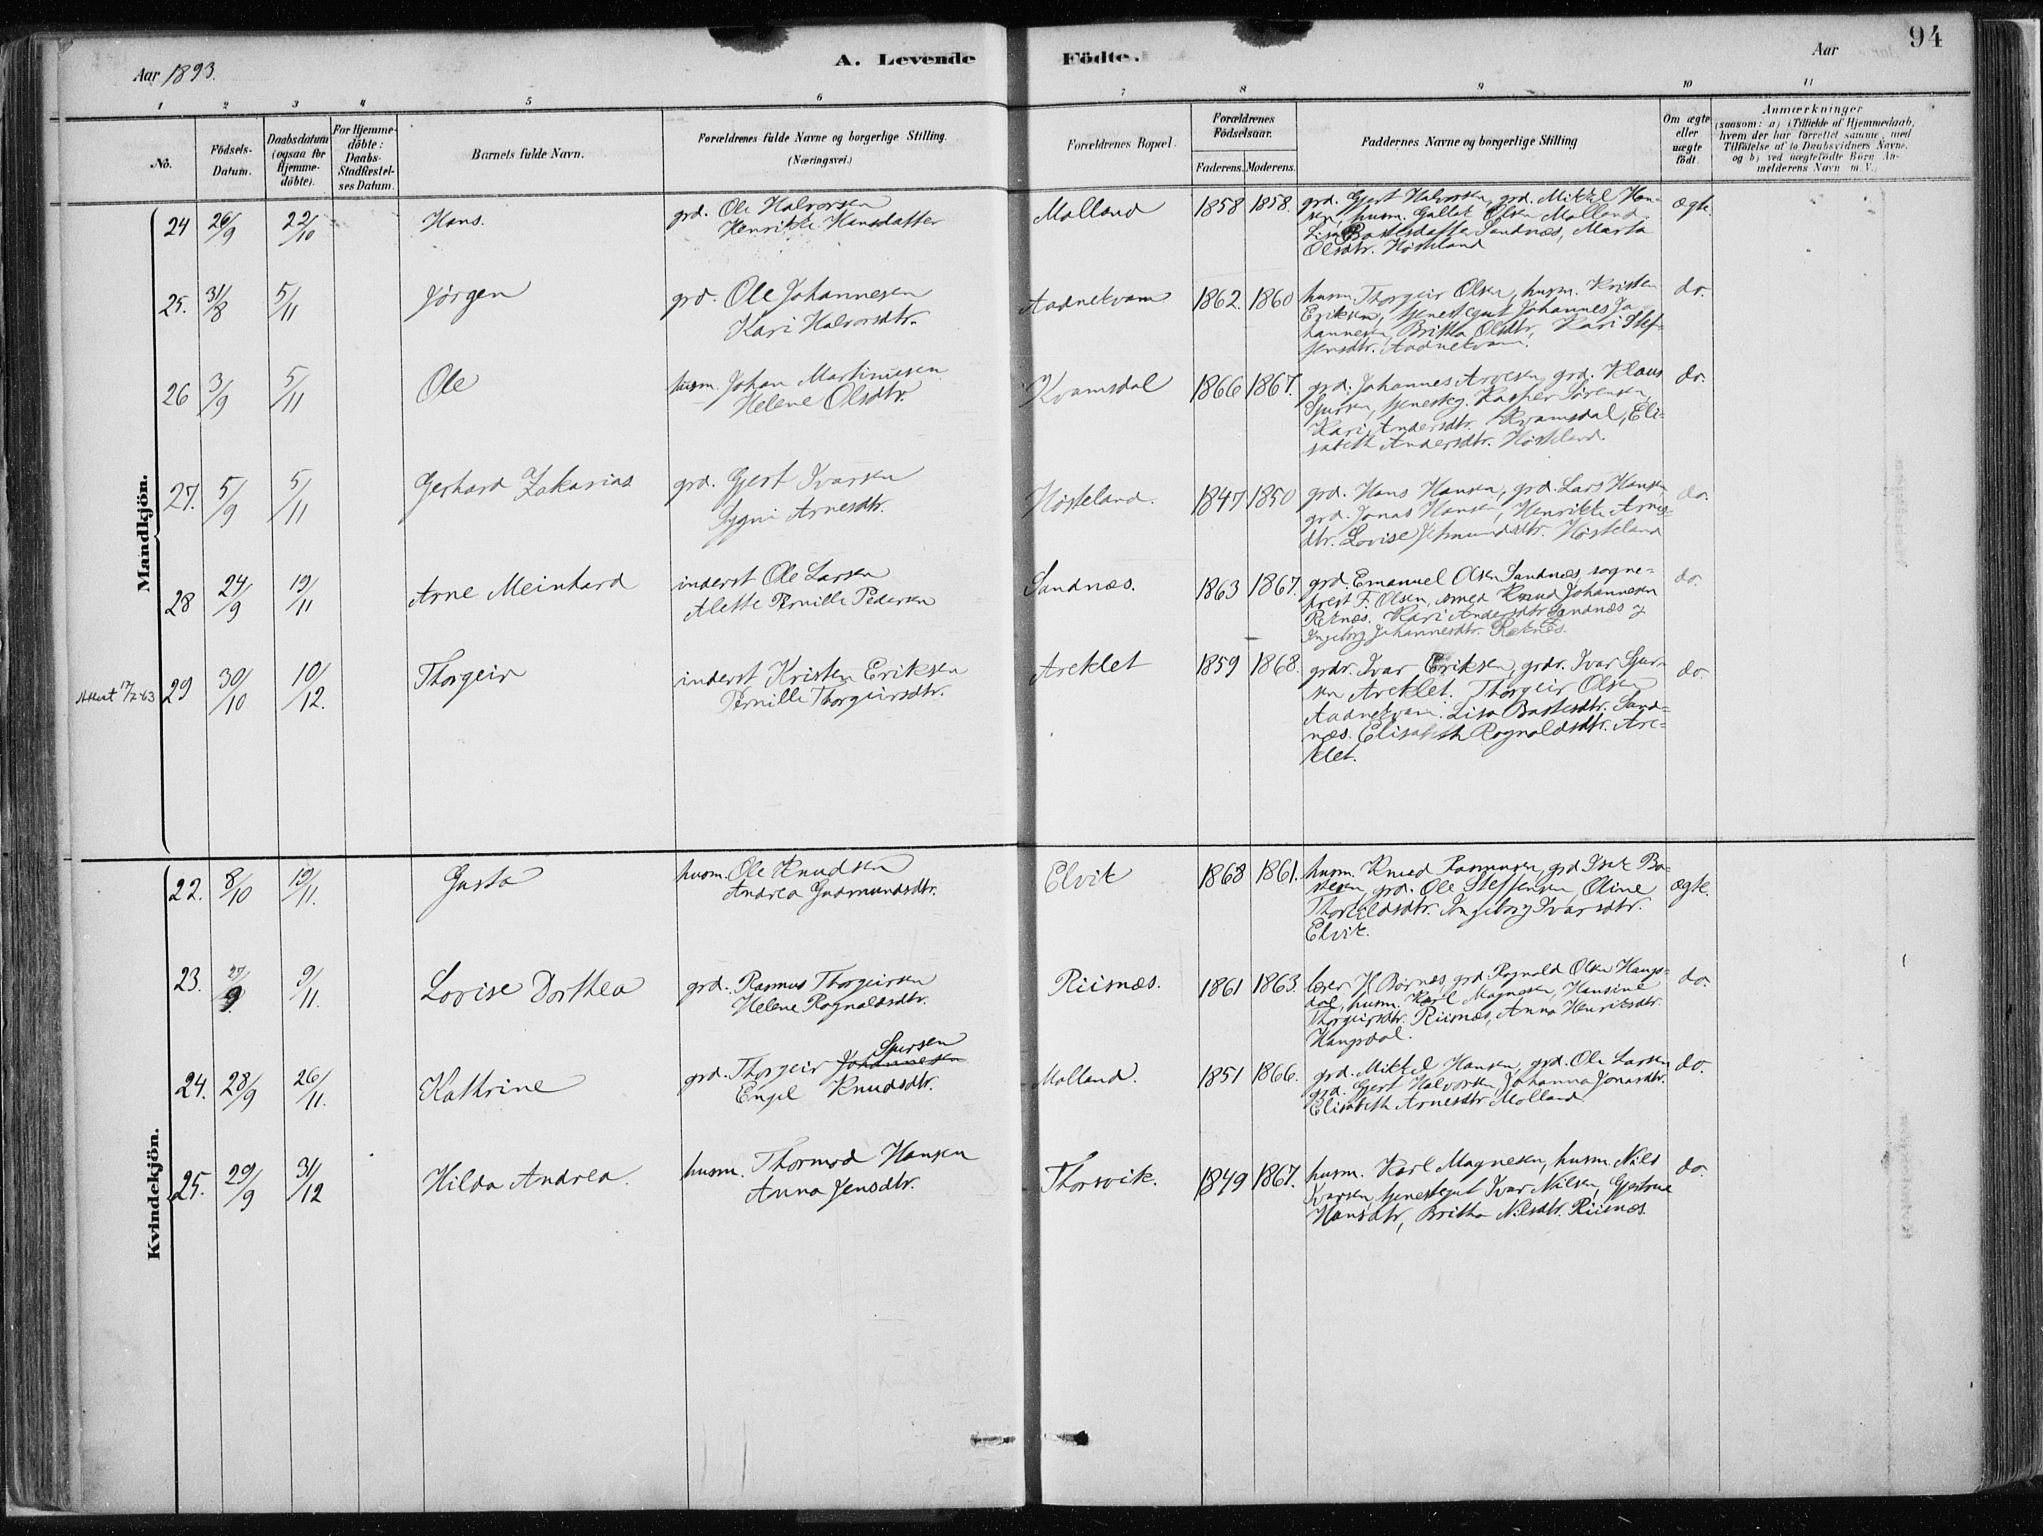 94
Aar 1893.
A. Levende Födte.
Aar
1 2 3 4 5 6 7 8 9 10 11
No.
Födsels-Datum.
Daabsdatum (ogsaa for Hjemme-döbte).
For Hjemme-döbte: Daabs-Stadfæstel-ses Datum.
Barnets fulde Navn.
Forældrenes fulde Navne og borgerlige Stilling. (Næringsvei.)
Forældrenes Bopæl.
Forældrenes Födselsaar.
Faderens. Moderens.
Faddernes Navne og borgerlige Stilling
Om ægte eller uægte födt.
Anmærkninger
(saasom: a) i Tilfælde af Hjemmedaab,
hvem der har forrettet samme, med
Tilföielse af to Daabsvidners Navne.
og b) ved uægtefödte Börn An-
melderens Navn m. V.)
Mandkjön.
24 26/9 22/10 Hans. grd. Ole Halvorsen
Henrikke Hansdatter
Molland 1858 1858. grd. Gjert Halvorsen, grd. Mikkel Han-
sen, husm. Gullak Olsen Molland
Lisa Bastesdatter Sandnæs, Marta
Olsdtr. Høsteland
ægte.
25. 31/8 5/11 Jørgen grd. Ole Johannesen
Kari Halvorsdtr.
Aadnekvam 1862. 1860 husm. Thorgeir Olsen, husm. Kristen
Eriksen, tjenestegut Johannes Jo-
hannesen, Britha Olsdtr, Kari Stef-
fensdtr. Aadnekvam.
do.
26 3/9 5/11 Ole husm. Johan Martinusen
Helene Olsdtr.
Kvamsdal 1866 1867. grd. Johannes Arvesen, grd. Klaus
Sjursen, tjenesteg. Kasper Sørensen,
Kari Andersdtr. Kvamsdal, Eli-
sabeth Andersdtr. Høsteland.
do.
27. 5/9 5/11 Gerhard Zakarias grd. Gjert Ivarsen
Sygni Arnesdtr.
Høsteland. 1847 1850 grd. Hans Hansen, grd. Lars Hansen
grd. Jonas Hansen, Henrikke Arnes-
dtr. Lovise Jetmundsdtr. Høsteland
do.
28 24/9 19/11 Arne Meinhard inderst Ole Larsen
Alette Pernille Pedersen
Sandnæs. 1863 1867. grd. Emanuel Olsen Sandnæs, sogne-
prest F. Olsen, smed Knud Johannesen
Reknæs. Kari Andersdtr Sandnæs og
Ingeborg Johannesdtr. Reknæs.
do.
29 30/10 10/12. Thorgeir inderst Kristen Eriksen
Pernille Thorgeirsdtr.
Areklet 1859 1868. grdr. Ivar Eriksen, grdr. Ivar Sjur-
sen Areklet. Thorgeir Olsen
Aadnekvam. Lisa Bastesdtr. Sand-
næs. Elisabeth Ragnaldsdtr. Are-
klet.
do.
Attest 17/7-63
Kvindekjön.
22. 8/10 19/11. Gusta husm. Ole Knudsen
Andrea Gudmundsdtr.
Elvik 1868 1861. husm. Knud Rasmusen, grd Isak Ba-
stesen, grd. Ole Steffensen, Oline
Thorkildsdtr. Ingeborg Ivarsdtr.
Elvik.
ægte.
23. 27/9. 9/11. Lovise Dorthea grd. Rasmus Thorgeirsen
Helene Ragnaldsdtr.
Riisnæs. 1861 1863. lærer H. Børnæs, grd Ragnald Olsen Haugs-
dal, husm. Karl Magnesen, Hansine
Thorgeirsdtr. Riisnæs, Anna Henriksdtr.
Haugsdal.
do.
24. 28/9 26/11. Kathrine grd. Thorgeir Johannesen Sjursen
Engel Knudsdtr.
Molland. 1851 1866. grd. Mikkel Hansen, grd. Ole Larsen
grd. Gjert Halvorsen, Johanna Jonasdtr.
Elisabeth Arnesdtr Molland
do.
25. 29/9 31/12 Hilda Andrea. husm. Thormod Hansen
Anna Jensdtr.
Thorsvik. 1849 1867. husm. Karl Magnesen, husm. Nils
Ivarsen, tjenestegut Ivar Nilsen, Gjertrue
Hansdtr, Britha Nilsdtr. Riisnæs.
do.